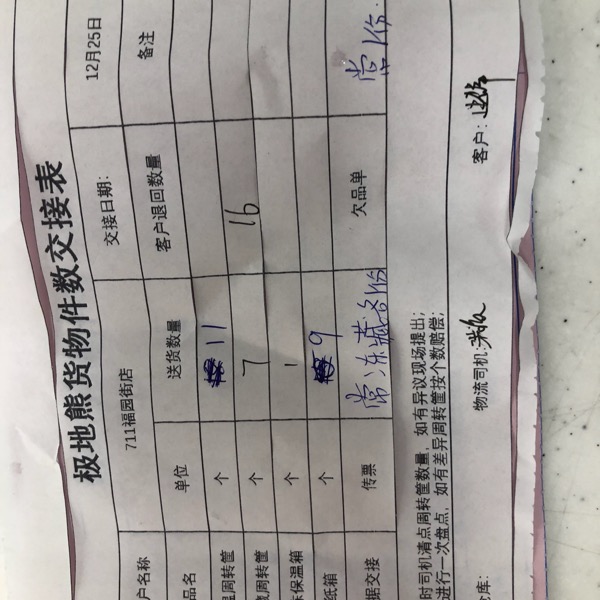 极地熊货物件数交接表
户名称 711福园街店 交接日期: 12月25日
品名 单位 送货数量 客户退回数量 备注
温周转筐 个 11
藏周转筐 个 7 16
冻保温箱 个 1
纸箱 个 9
据交接 传票 常冻藏各1份 欠品单 常1份.
时司机清点周转筐数量，如有异议现场提出；
进行一次盘点，如有差异周转筐按个数赔偿；
仓库: 物流司机: 客户: